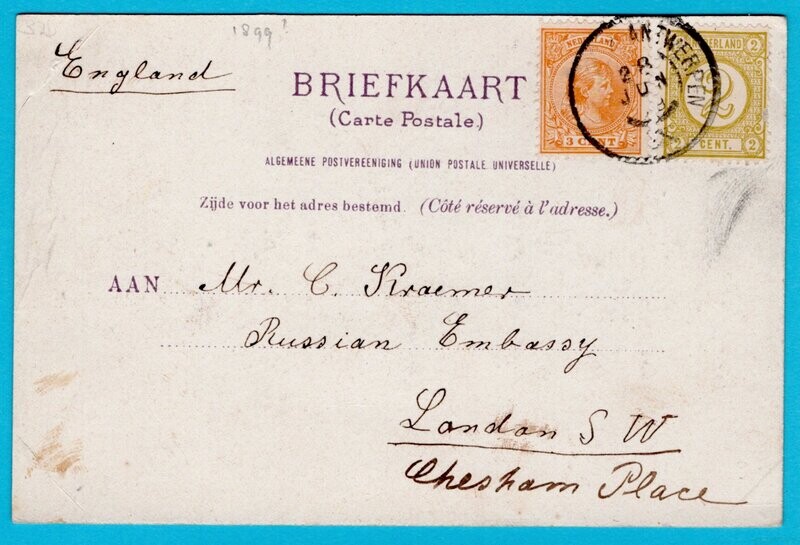 1899?
England
BRIEFKAART
(Carte Postale.)
ALGEMEENE POSTVEREENIGING (UNION POSTALE UNIVERSELLE)
Zijde voor het adres bestemd. (Côté réservé à l'adresse.)
NEDERLAND
3 CENT
NEDERLAND 2
2
2 CENT. 2
ANTWERPEN
28
JUN
AAN Mr. C. Kraemer
Russian Embassy
London S W
Chesham Place